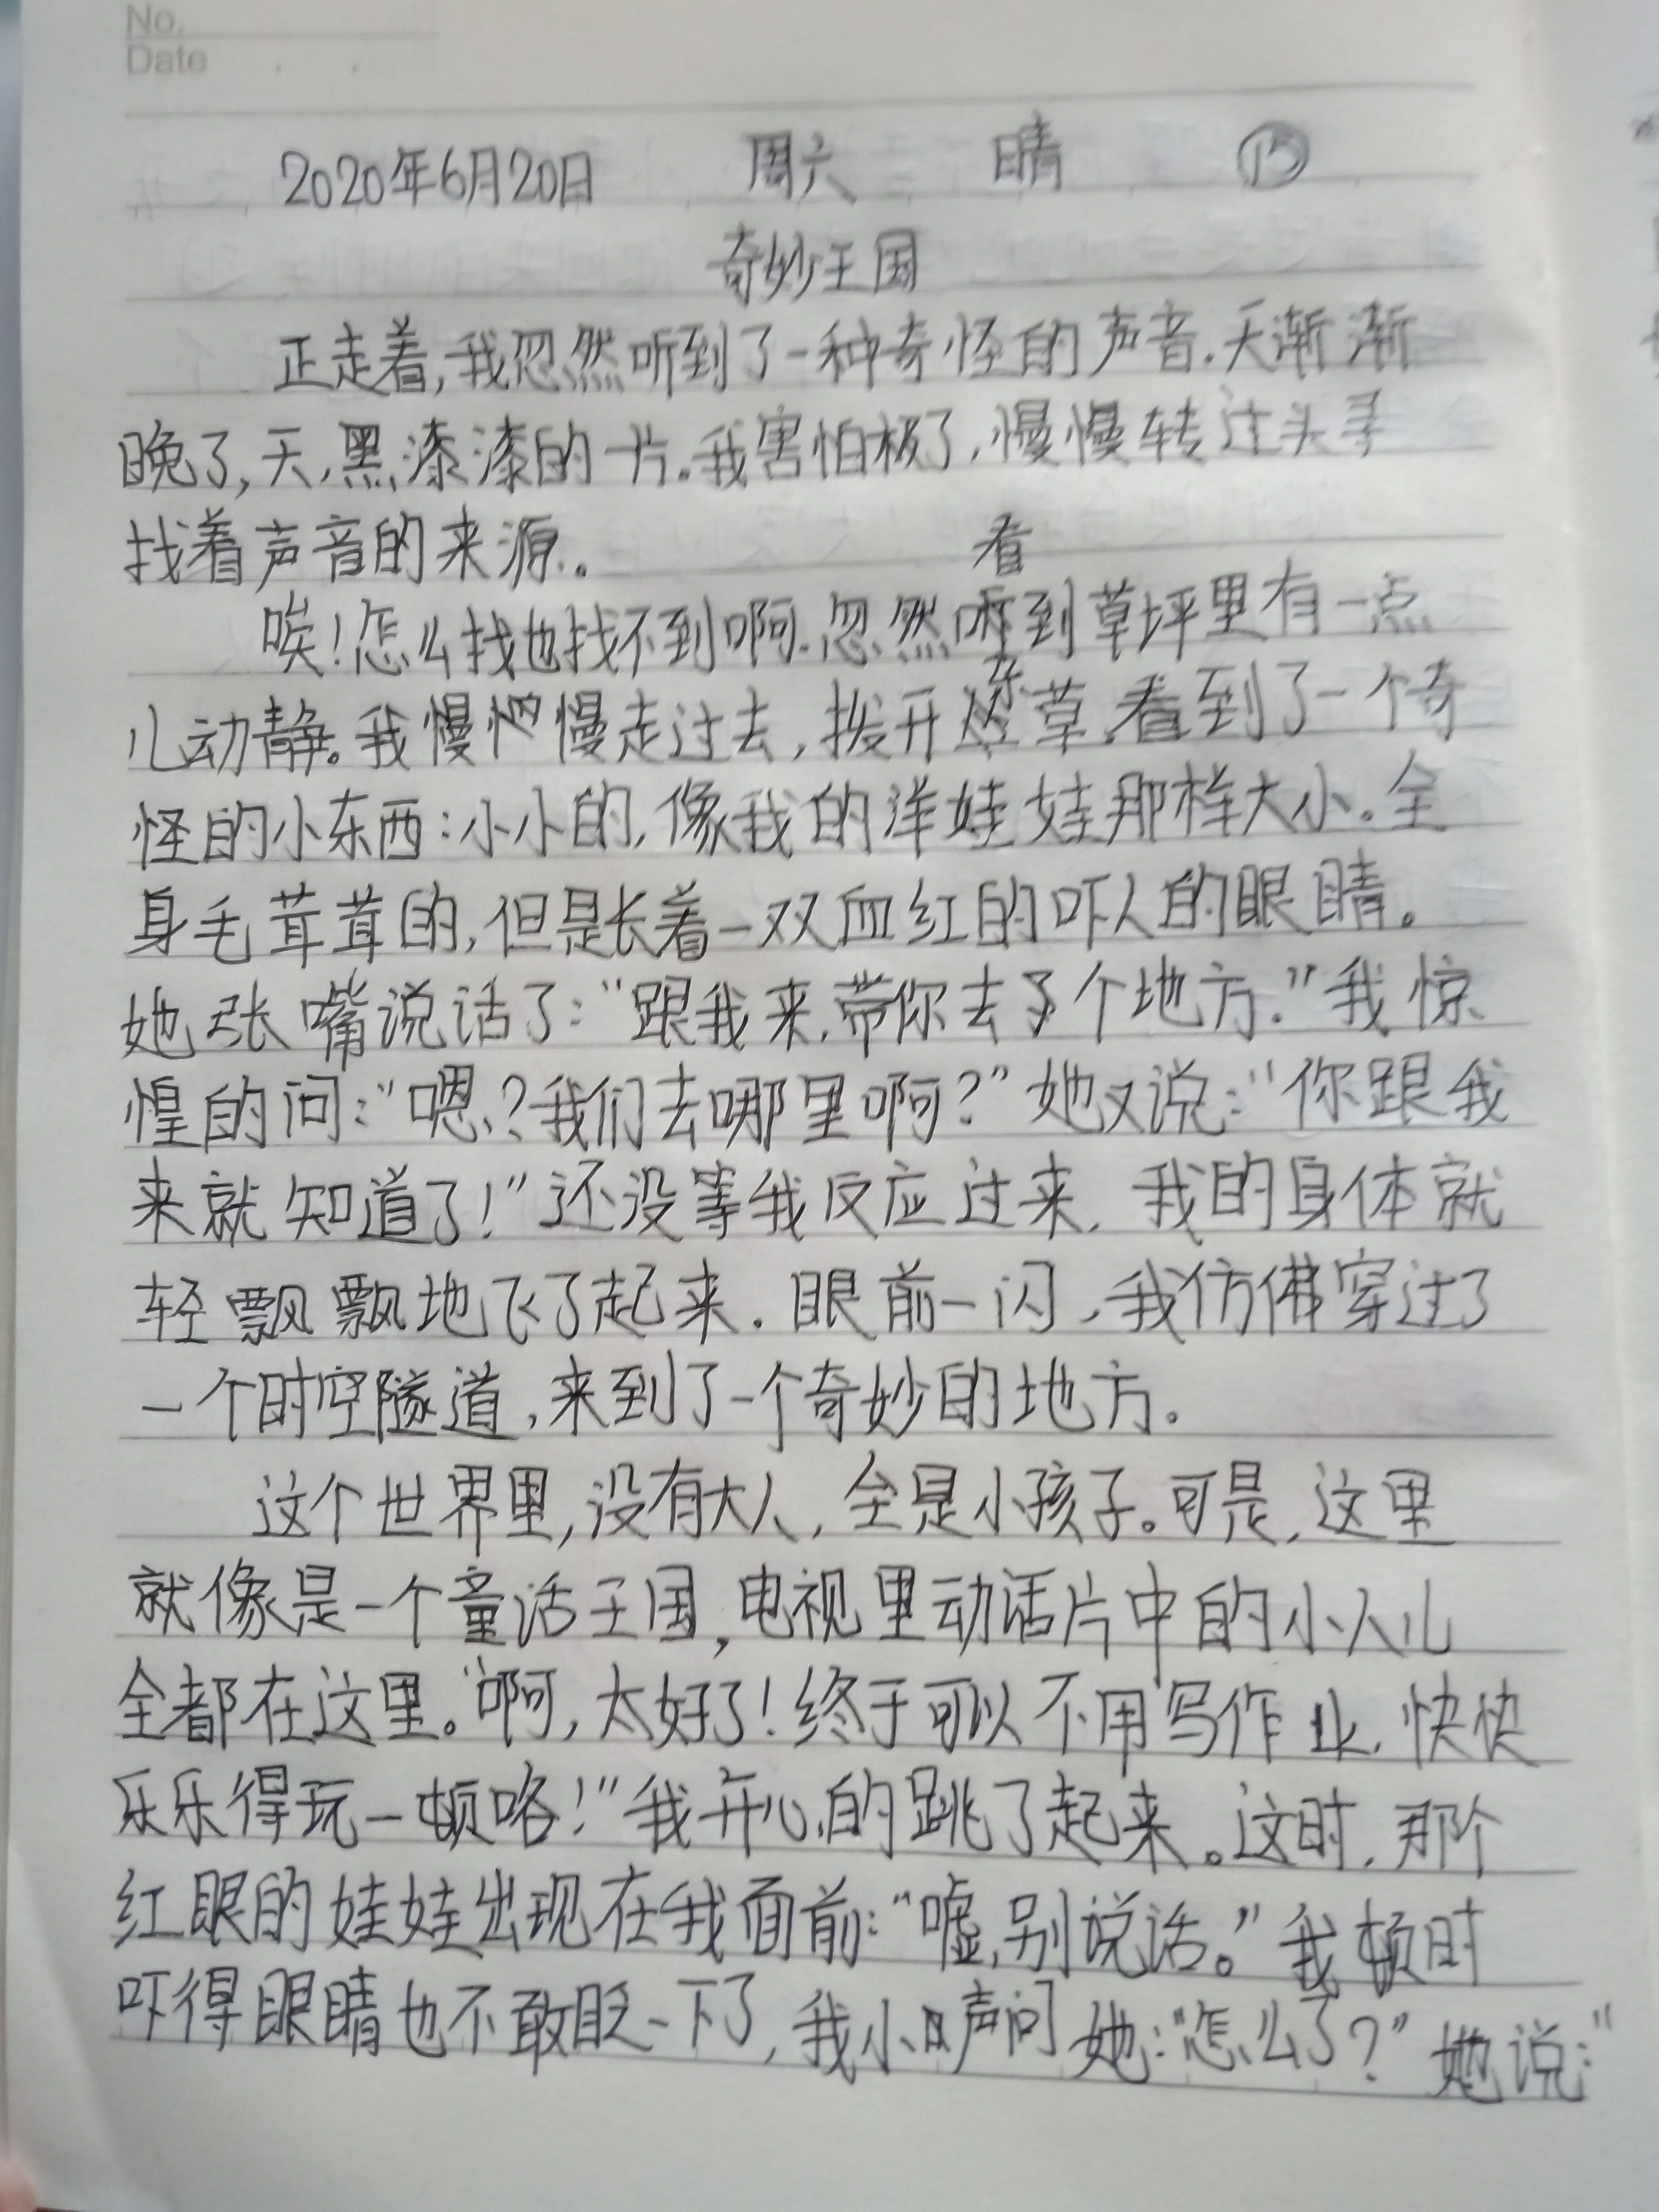 No.
Date
2020年6月20日 周六 晴 ⑮
奇妙王国
正走着,我忽然听到了一种奇怪的声音.天渐渐
晚了,天,黑漆漆的一片。我害怕极了,慢慢转过头寻
找着声音的来源。
看
唉!怎么找也找不到啊.忽然听到草坪里有一点
儿动静。我慢慢走过去,拨开杂草,看到了一个奇
怪的小东西:小小的,像我的洋娃娃那样大小。全
身毛茸茸的,但是长着一双血红的吓人的眼睛。
她张嘴说话了:“跟我来,带你去个地方.”我惊
惶的问:“嗯?我们去哪里啊?”她又说:“你跟我
来就知道了!”还没等我反应过来,我的身体就
轻飘飘地飞了起来.眼前一闪,我仿佛穿过了
一个时空隧道,来到了一个奇妙的地方。
这个世界里,没有大人,全是小孩子。可是,这里
就像是一个童话王国,电视里动话片中的小人儿
全都在这里。“啊,太好了!终于可以不用写作业,快快
乐乐得玩一顿咯!”我开心的跳了起来。这时,那个
红眼的娃娃出现在我面前:“嘘,别说话。”我顿时
吓得眼睛也不敢眨一下了,我小声问她:“怎么了?”她说:“